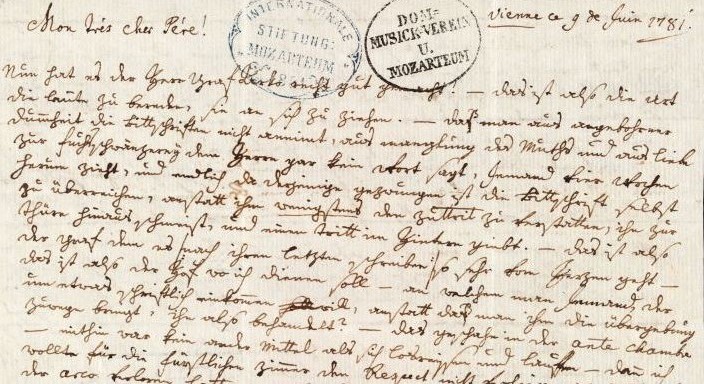 Mon trés cher Pére!
Vienne ce 9 de Juin 1781.
INTERNATIONALE STIFTUNG: MOZARTEUM
DOM-MUSICK-VEREIN U. MOZARTEUM
Nun hat es der Herr graf Arco recht gut gemacht! — das ist also die art
die leute zu bereden, sie an sich zu ziehen. — daß man aus angebohrner
dummheit die bittschriften nicht annimt, aus manglung des Muths und aus liebe
zur fuchsschwänzerey dem Herrn gar kein Wort sagt, Jemand vier Wochen
herum zieht, und endlich da derjenige gezwungen ist die bittschrift selbst
zu überreichen, anstatt ihm wenigstens den zutrit zu verstatten, ihn zur
thüre hinaus schmeist, und einen tritt im Hintern giebt. — das ist also
der graf dem es nach ihrem letzten schreiben so sehr von Herzen geht —
das ist also der Hof wo ich dienen soll — an welchem man Jemand der
um etwas schriftlich einkommen will, anstatt daß man ihm die übergebung
zuwege bringt, ihn also behandelt? — das geschah in der ante chambre
— mithin war kein ander Mittel als sich losreissen und lauffen — denn ich
wollte für die fürstlichen zimmer den Respect nicht
der arco verloren hatte